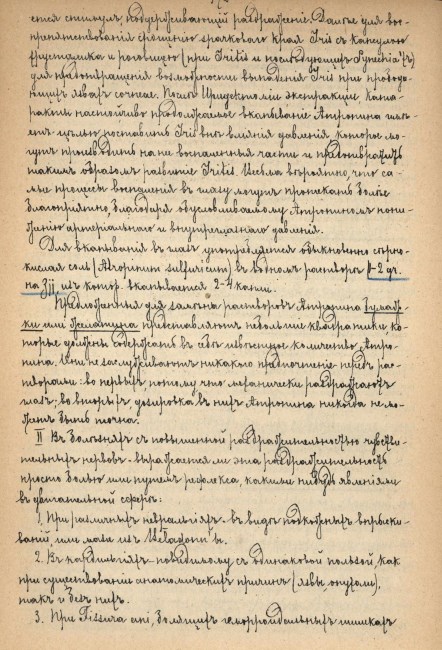 ется стимулъ, поддерживающій раздраженіе. Далѣе для вос-
препятствованія срощенію зрачковаго края Iris съ капсулою
хрусталика и роговицею (при Iritis и послѣдующихъ Synechia'хъ)
для предотвращенія возможности выпаденія Iris при прободе-
ющихъ язвахъ corneae. Послѣ Иридектоміи экстракціи, ката-
ракты настойчиво продолжаемое вкапываніе Атропина имѣ-
етъ цѣлью поставить Iris внѣ вліянія давленія которое мо-
гутъ производить на нее воспаленныя части и предотвратить
такимъ образомъ развитіе Iritis. Весьма вѣроятно, что са-
мые процессы воспаленія въ глазу могутъ протекать болѣе
благопріятно, благодаря обусловливаемому Атропиномъ пони-
женію артеріальнаго и внутриглазнаго давленія.
Для вкапыванія въ глазъ употребляется обыкновенно сѣрно-
кислая соль (Atropinum sulfuricum) въ водномъ растворѣ 1-2 gr.
на ℥jj, изъ котор. вкапывается 2-4 капли.
Предложенныя для замѣны растворовъ Атропина бумаж-
ки или желатина представляютъ небольшіе квадратики, ко-
торые должны содержать въ себѣ извѣстное количество Атро-
пина. Они не заслуживаютъ никакого предпочтенія передъ рас-
творами: во первыхъ потому что механически раздражаютъ
глазъ; во вторыхъ дозировка въ нихъ Атропина никогда не мо-
жетъ быть точна.
II Въ болѣзняхъ съ повышенной раздражительностью чувстви-
тельныхъ нервовъ - выражается ли эта раздражительность
просто болью или путемъ рефлекса, какими нибудь явленіями
въ двигательной сферѣ:
1. При различныхъ невралгіяхъ - въ видѣ подкожныхъ впрыски-
ваній или мази изъ Beladonn'ы.
2. Въ кардіалгіяхъ - повидимому съ одинаковой пользой, какъ
при существованіи анатомическихъ причинъ (язвы, опухоли),
такъ и безъ нихъ.
3. При Fissura ani, болящихъ геморроидальныхъ шишкахъ